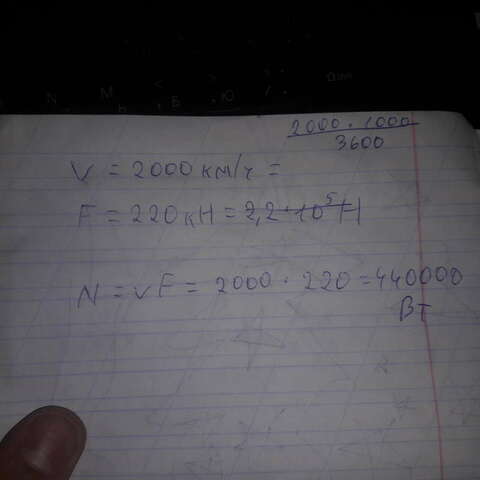 N M < > ?
Ь Б Ю
2000 · 1000
3600
V = 2000 км/ч =
F = 220 кН = 2,2 · 10⁵ Н
N = vF = 2000 · 220 = 440000
Вт